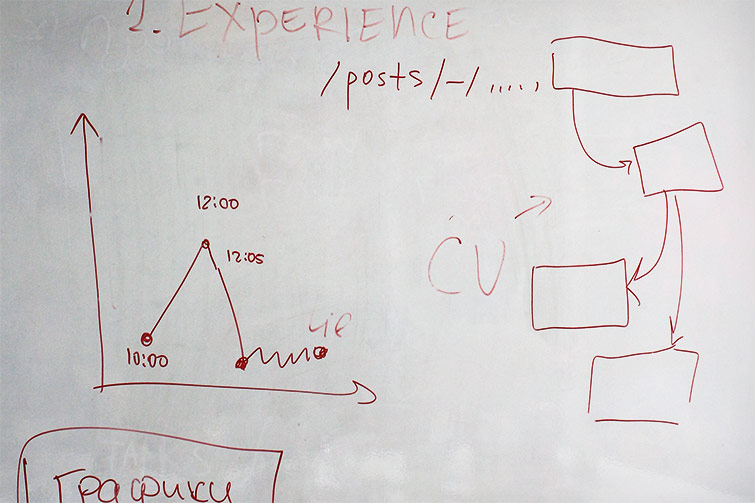 1. EXPERIENCE
/posts/-/.....,
12:00
12:05
CV
10:00
Графики